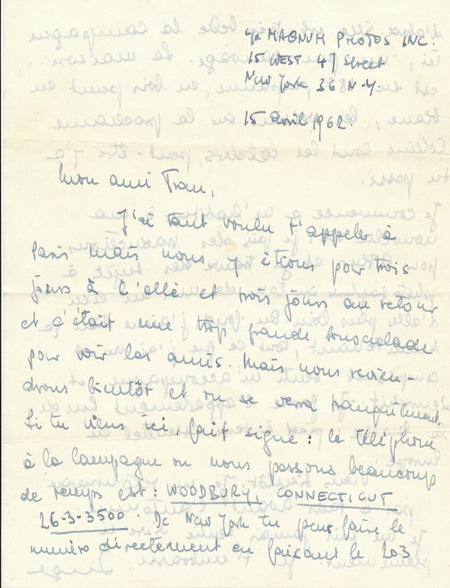 c/o MAGNUM PHOTOS INC.
15 WEST 47 Street
New York 36 N.Y.
15 avril 1962.
Mon ami Tran,
J'ai tant voulu t'appeler à
Paris mais nous y étions pour trois
jours à l'allé et trois jours au retour
et ç'était une trop grande bousculade
pour voir les amis. Mais nous revien-
drons bientôt et on se verra tranquilment.
Si tu viens ici, fait signe : le téléphon
à la campagne ou nous passons beaucoup
de temps est : WOODBURY, CONNECTICUT
26-3-3500 De New York tu peux faire le
numéro directement en faisant le 203